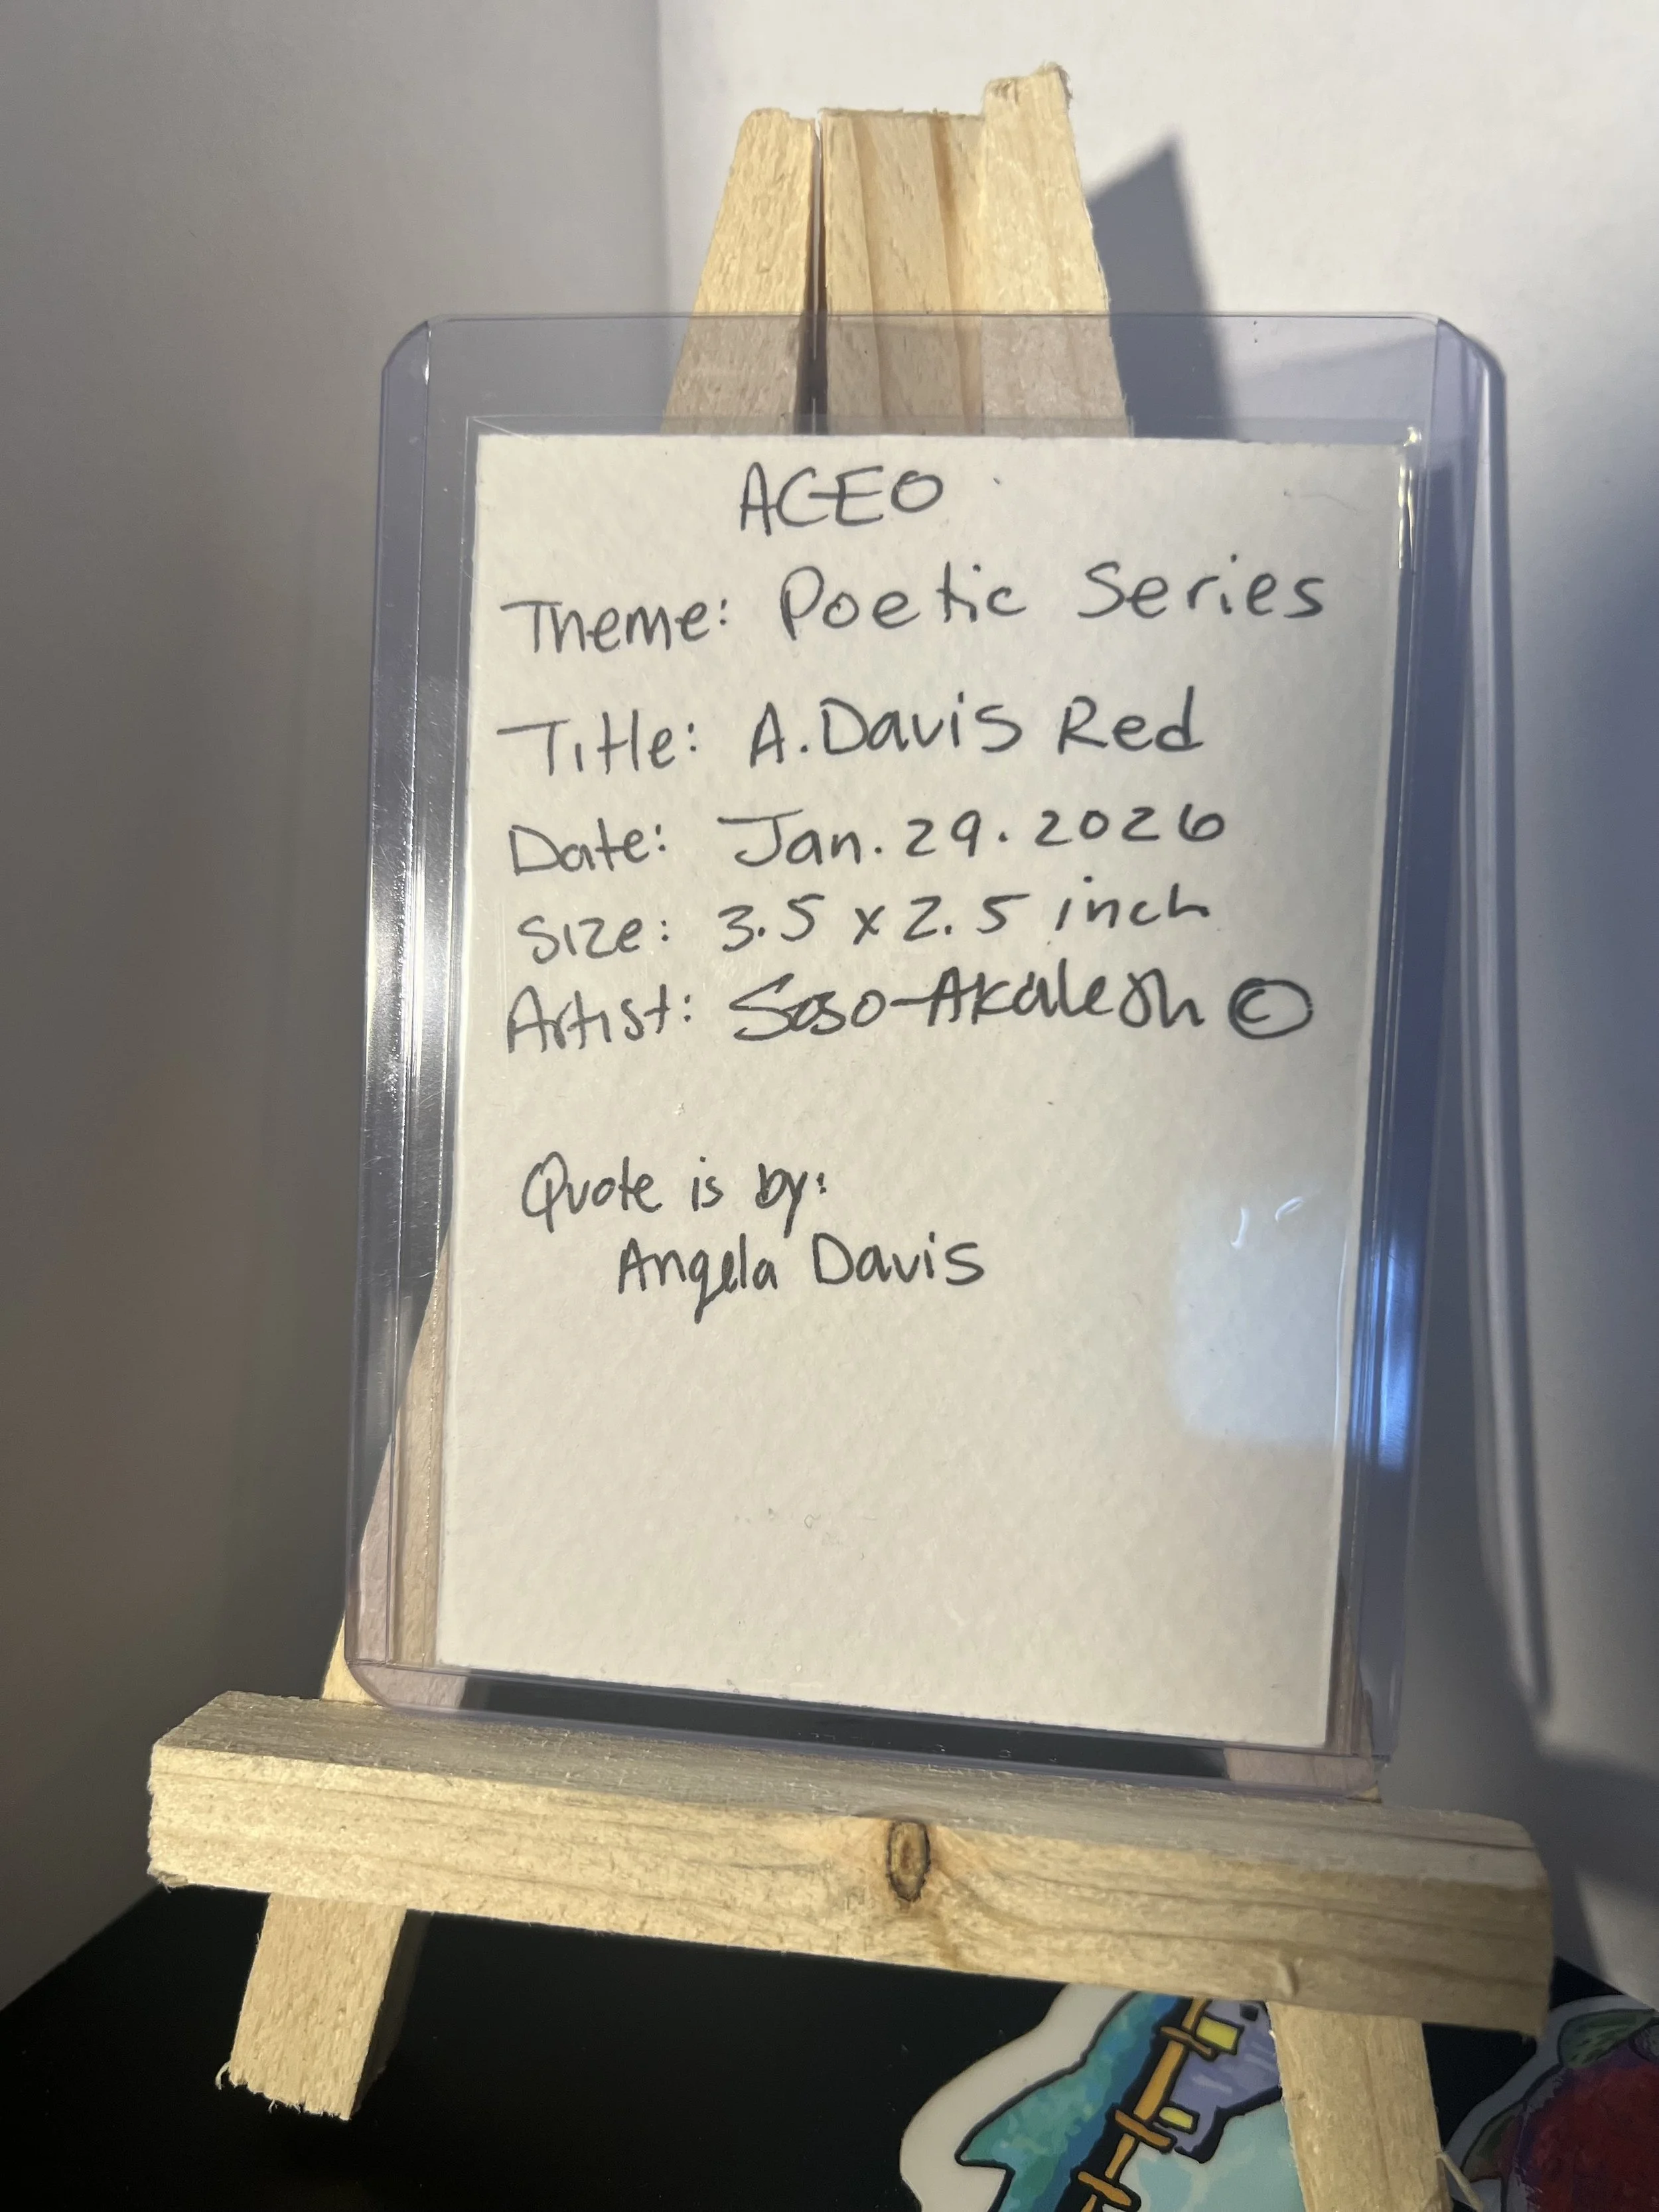 ACEO
Theme: Poetic Series
Title: A. Davis Red
Date: Jan. 29. 2026
Size: 3.5 x 2.5 inch
Artist: ©
Quote is by:
Angela Davis